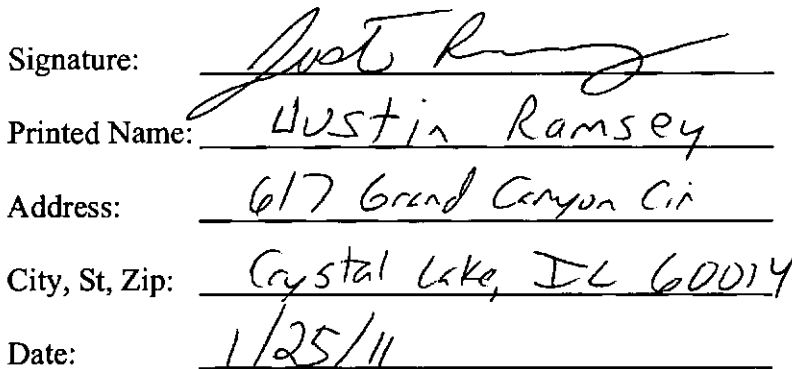 Signature: Just R
Printed Name: Justin Ramsey
Address: 617 Grand Canyon Cir
City, St, Zip: Crystal Lake, IL 60014
Date: 1/25/11